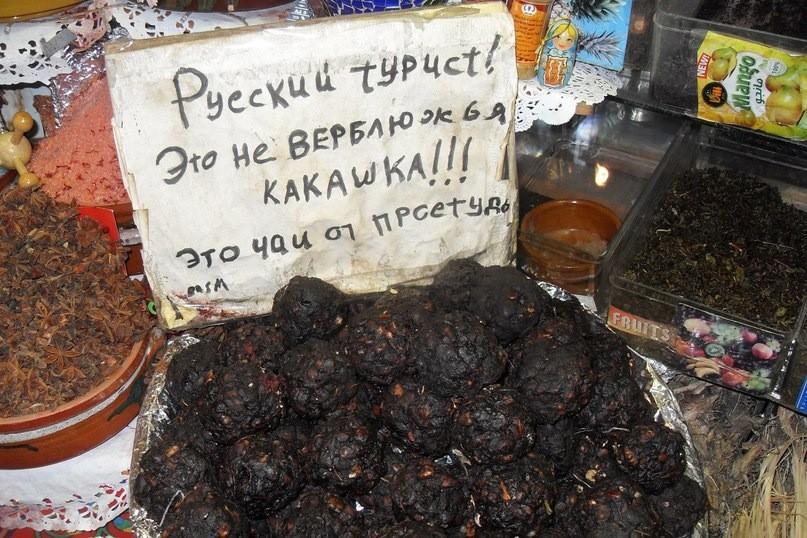 Русский турист!
Это не ВЕРБЛЮЖЬЯ
КАКАШКА!!!
Это чаи от прсетудь
NEW!
Mango
مانجو
FRUITS